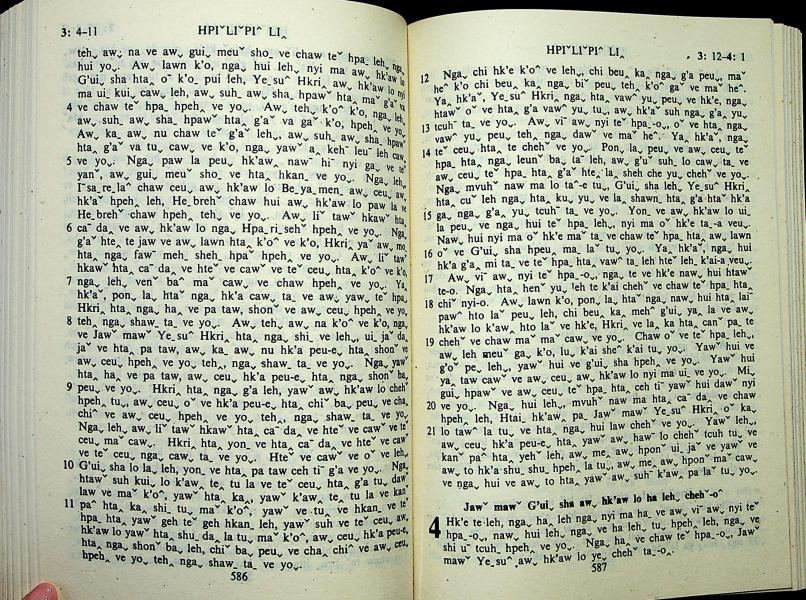 3: 4-11
HPIˇLIˇPI^ LI‸
teh‸ aw‸ na ve aw‸ gui‸ meuˇ sho‸ ve chaw teˇ hpa‸ leh‸ nga‸
hui yo‸. Aw‸ lawn k'o‸ nga‸ hui leh‸ nyi ma aw‸ hk'aw lo
G'ui‸ sha hta‸ oˉ k'o‸ pui leh‸ Ye‸su^ Hkri‸ aw‸ hk'aw lo nyi
ma ui‸ kui‸ caw‸ leh‸ aw‸ suh‸ aw‸ sha‸ hpawˇ hta‸ maˇ g'a^ va
4 ve chaw teˇ hpa‸ hpeh‸ ve yo‸. Aw‸ teh‸ k'o^ k'o‸ nga‸ leh‸
aw‸ suh‸ aw‸ sha‸ hpawˇ hta‸ g'aˇ va gaˇ k'o‸ hpeh‸ ve yo‸.
Aw‸ ka‸ aw‸ nu chaw teˇ g'aˇ leh‸ aw‸ suh‸ aw‸ sha‸ hpaw
hta‸ g'aˇ va tu‸ caw‸ ve k'o‸ nga‸ yawˇ a‸ kehˉ leuˇ leh‸ caw‸
5 ve yo‸. Nga‸ paw la peu‸ hk'aw‸ nawˉ hiˉ nyi ga‸ ve teˇ
yan^‸ aw‸ gui‸ meuˇ sho‸ ve hta‸ hkan‸ ve yo‸. Nga‸ leh‸
I^sa‸re‸la^ chaw ceu‸ aw‸ hk'aw lo Be‸ya‸men‸ aw‸ ceu‸ aw‸
hk'aˇ hpeh‸ leh‸ He‸breh^ chaw hui aw‸ hk'aw lo paw la ve
He‸breh^ chaw hpeh‸ teh‸ ve yo‸. Aw‸ liˇ tawˇ hkawˇ hta‸
6 caˉ da‸ ve aw‸ hk'aw lo nga‸ Hpa‸ri‸seh^ hpeh‸ ve yo‸. Nga‸
g'aˇ hte‸ te jaw ve aw‸ lawn hta‸ k'o^ ve k'o‸ Hkri‸ yaˇ aw‸ mo‸
hta‸ nga‸ fawˉ meh‸ sheh‸ hpaˇ hpeh‸ ve yo‸. Aw‸ liˇ tawˇ
hkawˇ hta‸ caˉ da‸ ve hteˇ ve cawˇ ve teˇ ceu‸ hta‸ k'o^ ve k'o‸
7 nga‸ leh‸ venˇ ba^ maˇ caw‸ ve chaw hpeh‸ ve yo‸. Ya‸
hk'aˇ‸ pon‸ la‸ htaˇ nga‸ hk'a caw‸ ta‸ ve aw‸ yaw‸ teˇ hpa‸
Hkri‸ hta‸ nga‸ ha‸ ve pa taw‸ shonˇ ve aw‸ ceu‸ hpeh‸ ve yo‸
8 teh‸ nga‸ shaw‸ ta‸ ve yo‸. Aw‸ teh‸ aw‸ na k'o^ ve k'o‸ nga‸
ve Jawˇ mawˇ Ye‸su^ Hkri‸ hta‸ nga‸ shi‸ ve leh‸ ui‸ jaˇ da‸
jaˇ ve hta‸ pa taw‸ aw‸ ka‸ aw‸ nu hk'a peu-e‸ hta‸ shonˇ ve
aw‸ ceu‸ hpeh‸ ve yo‸ teh‸ nga‸ shaw‸ ta‸ ve yo‸. Nga‸ yawˇ
hta‸ ha‸ ve pa taw‸ aw‸ ceu‸ hk'a peu-e‸ hta‸ nga‸ shonˇ ba‸
9 peu‸ ve yo‸. Hkri‸ hta‸ nga‸ g'a leh‸ yawˇ aw‸ hk'aw lo chehˇ
hpeh‸ tu‸ aw‸ ceu‸ oˇ ve hk'a peu-e‸ hta‸ chiˇ ba‸ peu‸ ve cha‸
chi^ ve aw‸ ceu‸ hpeh‸ ve yo‸ teh‸ nga‸ shaw‸ ta‸ ve yo‸.
Nga‸ leh‸ aw‸ liˇ tawˇ hkawˇ hta‸ caˉ da‸ ve hteˇ ve cawˇ ve teˇ
ceu‸ maˇ caw‸. Hkri‸ hta‸ yon‸ ve hta‸ caˉ da‸ ve hteˇ ve cawˇ
ve teˇ ceu‸ nga‸ caw‸ ta‸ ve yo‸. Hteˇ ve cawˇ ve oˇ ve leh‸
10 G'ui‸ sha lo la‸ leh‸ yon‸ ve hta‸ pa taw ceh tiˉ g'a ve yo‸. Nga‸
htawˇ suh kui‸ lo k'aw‸ te‸ tu la ve teˇ ceu‸ hta‸ g'a tu‸ daw^
law ve maˇ k'o^‸ yawˇ hta‸ ka‸ yawˇ k'aw‸ te‸ tu la ve kan‸
11 pa^ hta‸ ka‸ shi‸ tu‸ maˇ k'o^‸ yawˇ ve tu‸ ve hkan‸ ve teˇ
hpa‸ hta‸ yawˇ geh teˇ geh hkan‸ leh‸ yawˇ suh ve teˇ ceu‸ aw‸
hk'aw lo yawˇ hta‸ shu‸ da‸ la tu‸ maˇ k'o^‸ aw‸ ceu‸ hk'a peu-e‸
hta‸ nga‸ shonˇ ba‸ leh‸ chiˇ ba‸ peu‸ ve cha‸ chi^ ve aw‸ ceu‸
hpeh‸ ve yo‸ teh‸ nga‸ shaw‸ ta‸ ve yo‸.
586
HPIˇLIˇPI^ LI‸
3: 12-4: 1
12 Nga‸ chi hk'e k'o^ ve leh‸ chi beu‸ ka‸ nga‸ g'a peu‸ maˇ
he^ k'o chi beu‸ ka‸ nga‸ biˇ peu‸ teh‸ k'o^ gaˇ ve maˇ he^.
Ya‸ hk'aˇ‸ Ye‸su^ Hkri‸ nga‸ hta‸ vawˇ yu‸ peu‸ ve hk'e‸ nga‸
htawˇ oˇ ve hta‸ g'a vawˇ yu‸ tu‸ aw‸ hk'aˇ suh nga‸ g'a yu‸
13 tcuhˉ ta‸ ve yo‸. Aw‸ viˉ aw‸ nyi teˇ hpa-o‸‸ oˇ ve hta‸ nga‸
vawˇ yu‸ peu‸ teh‸ nga‸ dawˇ ve maˇ he^. Ya‸ hk'aˇ‸ nga‸
14 teˇ ceu‸ hta‸ te chehˇ ve yo‸. Pon‸ la‸ peu ve aw‸ ceu‸ teˇ
hpa‸ hta‸ nga‸ leunˇ ba‸ ta‸ leh‸ aw‸ g'uˇ suh‸ lo caw‸ ta‸ ve
aw‸ ceu‸ teˇ hpa‸ hta‸ g'aˇ hte‸ la‸ sheh che yu‸ chehˇ ve yo‸.
Nga‸ mvuhˇ naw ma lo taˉ-e tu‸ G'ui‸ sha leh‸ Ye‸su^ Hkri‸
hta‸ cuˇ leh nga‸ hta‸ ku‸ yu‸ ve la‸ shawn‸ hta‸ g'a htaˇ hk'a
15 ga‸ nga‸ g'a‸ yu‸ tcuhˉ ta‸ ve yo‸. Yon‸ ve aw‸ hk'aw lo ui‸
la peu‸ ve nga‸ hui teˇ hpa‸ leh‸ nyi ma oˇ hk'e ta‸-a veu‸.
Naw‸ hui nyi ma oˇ hk'e maˇ ta‸ ve chaw teˇ hpa‸ hta‸ aw‸ lawn
16 oˇ ve G'ui‸ sha hpeu ma‸ laˇ tu‸ yo‸. Ya‸ hk'aˇ‸ nga‸ hui
hk'a g'a‸ mi ta‸ ve teˇ hpa‸ hta‸ vawˇ ta‸ leh hteˇ leh‸ k'ai-a veu‸.
17 Aw‸ viˉ aw‸ nyi teˇ hpa-o‸‸ nga‸ te ve hk'e naw‸ hui htawˇ
te-o. Nga‸ hta‸ henˇ yu‸ leh te k'ai chehˇ ve chaw teˇ hpa‸ hta‸
18 chiˇ nyi-o. Aw‸ lawn k'o‸ pon‸ la‸ htaˇ nga‸ naw‸ hui hta‸ laiˉ
paw^ hto laˇ peu‸ leh‸ chi beu‸ ka‸ meh^ g'ui‸ ya‸ la ve aw‸
hk'aw lo k'aw‸ hto laˇ ve hk'e‸ Hkri‸ ve la‸ ka hta‸ canˇ pa‸ te
19 chehˇ ve chaw maˇ maˇ caw‸ ve yo‸. Chaw oˇ ve teˇ hpa‸ leh‸
aw‸ leh meuˇ ga‸ k'o‸ lu‸ k'ai she^ k'ai tu‸ yo‸. Yawˇ hui ve
g'oˇ pe‸ leh‸ yawˇ hui ve g'ui‸ sha hpeh‸ ve yo‸. Yawˇ hui
ya‸ taw cawˇ ve aw‸ ceu‸ aw‸ hk'aw lo nyi ma ui‸ ve yo‸. Mi‸
gui‸ hpawˇ ve aw‸ ceu‸ teˇ hpa‸ hta‸ ceh tiˉ yawˇ hui dawˇ nyi
20 ve yo‸. Nga‸ hui leh‸ mvuhˇ naw ma hta‸ caˉ da‸ ve chaw
hpeh‸ leh‸ Htai‸ hk'aw‸ pa‸ Jawˇ mawˇ Ye‸su^ Hkri‸ oˇ ka‸
21 lo tawˇ la tu‸ ve hta‸ nga‸ hui law chehˇ ve yo‸. Yawˇ leh‸
aw‸ ceu‸ hk'a peu-e‸ hta‸ yawˇ aw‸ hawˇ lo chehˇ tcuh tu‸ ve
kanˇ pa^ hta‸ yeh^ leh‸ aw‸ me‸ aw‸ hponˇ ui‸ jaˇ ve yawˇ ve
aw‸ to hk'aˇ shu‸ shu‸ hpeh‸ la tu‸‸ aw‸ me‸ aw‸ hponˇ maˇ caw‸
ve nga‸ hui ve aw‸ to hta‸ yawˇ aw‸ suhˉ k'aw‸ pa laˇ tu‸ yo‸.
Jawˇ mawˇ G'ui‸ sha aw‸ hk'aw lo ha leh‸ chehˇ-o^
4 Hk'e te leh‸ nga‸ ha‸ leh nga‸ nyi ma ha ve aw‸ viˉ aw‸ nyi teˇ
hpa‸-o‸‸ naw‸ hui leh‸ nga‸ ve ha leh‸ tu‸ hpeh‸ leh‸ nga‸ ve
shi uˉ tcuh hpeh‸ ve yo‸. Nga‸ ha‸ ve chaw teˇ hpa‸-o‸‸ Jawˇ
mawˇ Ye‸su^ aw‸ hk'aw lo ye‸ chehˇ ta‸-o‸.
587